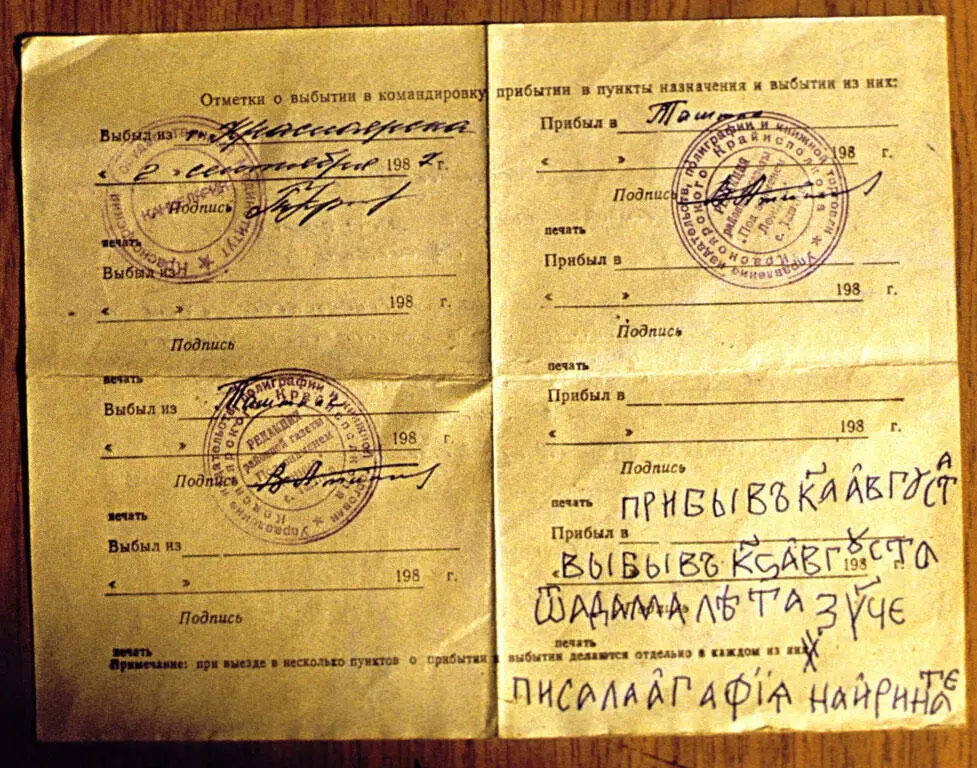 Отметки о выбытии в командировку, прибытии в пункты назначения и выбытии из них:
Выбыл из г. Красноярска
« 2 » сентября 1982 г.
Подпись
печать
Выбыл из
« » 198 г.
Подпись
печать
Выбыл из
« » 198 г.
Подпись
печать
Выбыл из
« » 198 г.
Подпись
печать
Прибыл в
« » 198 г.
Подпись
печать
Прибыл в
« » 198 г.
Подпись
печать
Прибыл в
« » 198 г.
Подпись
печать
Прибыл в
« » 198 г.
печать
Примечание: при выезде в несколько пунктов о прибытии и выбытии делаются отдельно в каждом из них
ПРИБЫВЪ К҃А АВГУСТА
ВЫБЫВЪ К҃Ѕ АВГУСТА
Ѿ АДАМА ЛѢТА ЗУ҃Ч Є
ПИСАЛА АГАФІꙖ
Управление издательств, полиграфии и книжной торговли
Красноярского Крайисполкома
РЕДАКЦИЯ
районной газеты
Управление издательств, полиграфии и книжной торговли
Красноярского Крайисполкома
РЕДАКЦИЯ
районной газеты